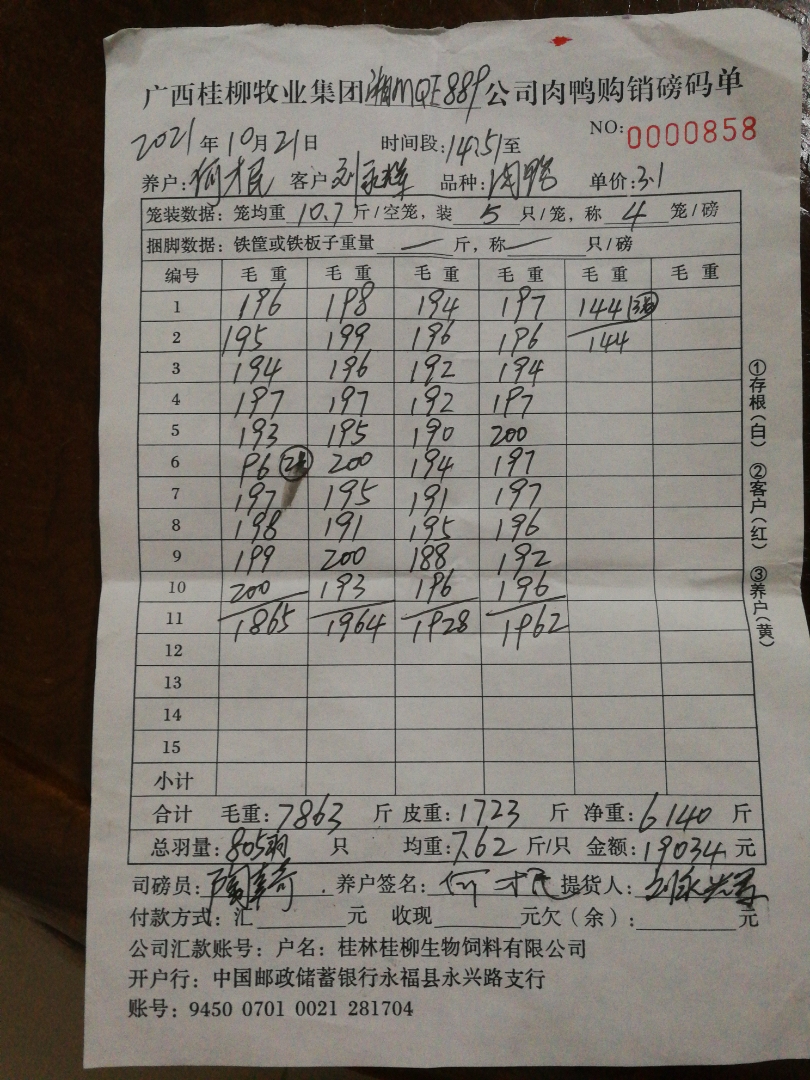 广西桂柳牧业集团湘MQE889公司肉鸭购销磅码单
NO:0000858
2021年10月21日 时间段:14:51至
养户:何才民 客户 刘永辉 品种:肉鸭 单价:3.1
笼装数据:笼均重 10.7 斤/空笼,装 5 只/笼,称 4 笼/磅
捆脚数据:铁筐或铁板子重量 — 斤,称 — 只/磅
编号 毛重 毛重 毛重 毛重 毛重 毛重
1 196 198 194 197 144 (3笼)
2 195 199 196 196 144
3 194 196 192 194
4 197 197 192 197
5 193 195 190 200
6 96 (2笼) 200 194 197
7 197 195 191 197
8 198 191 195 196
9 199 200 188 192
10 200 193 196 196
11 1865 1964 1928 1962
12
13
14
15
小计
合计 毛重:7863 斤 皮重:1723 斤 净重:6140 斤
总羽量:805羽 只 均重:7.62 斤/只 金额:19034 元
司磅员: 养户签名:何才民 提货人:刘永辉
付款方式:汇 元 收现 元欠(余): 元
公司汇款账号:户名:桂林桂柳生物饲料有限公司
开户行:中国邮政储蓄银行永福县永兴路支行
账号:9450 0701 0021 281704
①存根(白) ②客户(红) ③养户(黄)